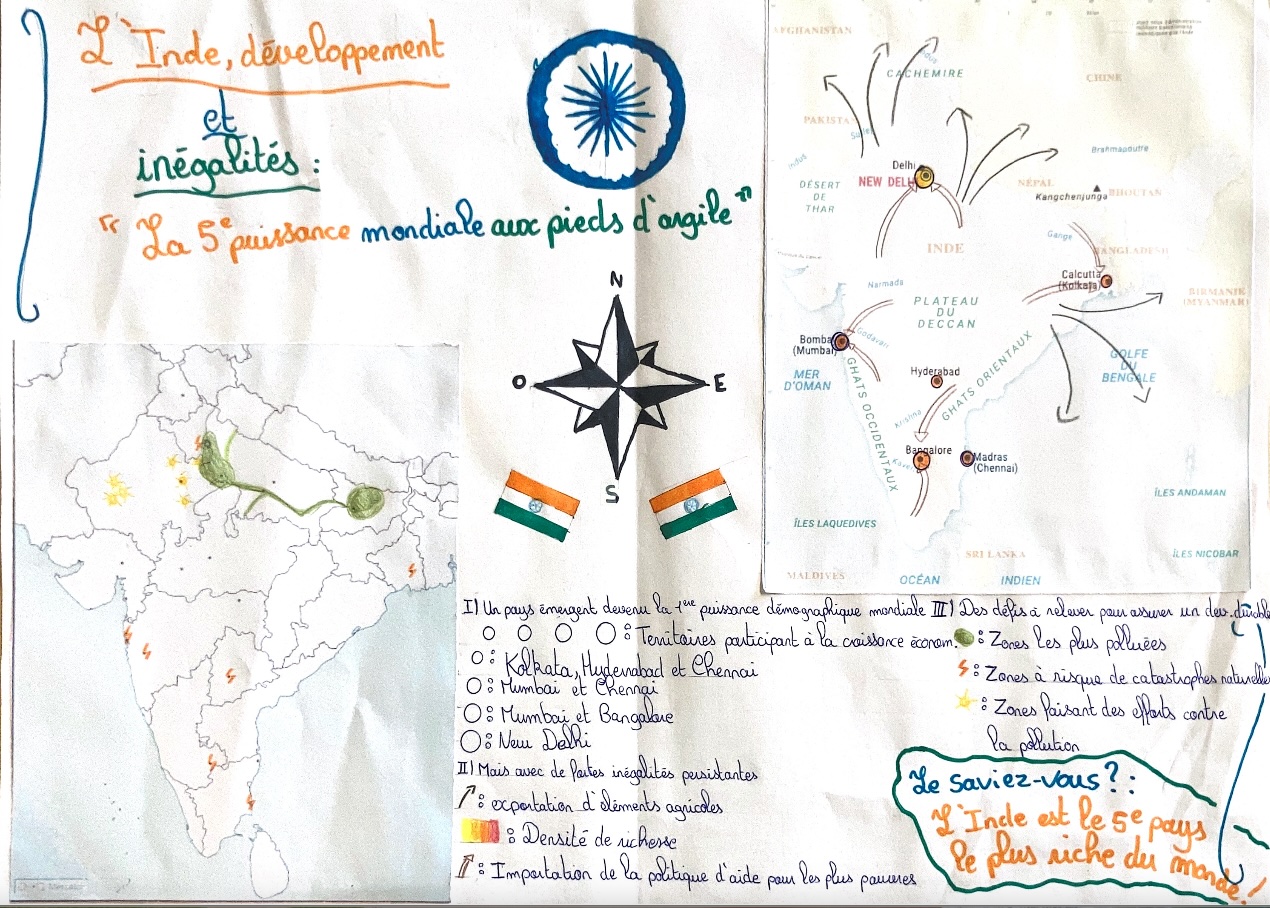 L'Inde, développement
et
inégalités :
" La 5e puissance mondiale aux pieds d'argile "
N
O
E
S
AFGHANISTAN
Indus
CACHEMIRE
CHINE
PAKISTA
Brahmapoutre
Indus
Delhi
NEW DELHI
DÉSERT
DE
THAR
NÉPAL
BHOUTAN
Kangchenjunga
Gange
BANGLADESH
INDE
Calcutta
(Kolkata)
Narmada
BIRMANIE
(MYANMAR)
PLATEAU
DU
DECCAN
Godavari
Bomba
(Mumbai)
GOLFE
DU
BENGALE
MER
D'OMAN
Hyderabad
GHATS OCCIDENTAUX
GHATS ORIENTAUX
Krishna
Bangalore
Madras
(Chennai)
ÎLES ANDAMAN
ÎLES LAQUEDIVES
SRI LANKA
ÎLES NICOBAR
MALDIVES
OCÉAN
INDIEN
I) Un pays émergent devenu la 1ère puissance démographique mondiale
: Territoires participant à la croissance économ.
: Kolkata, Hyderabad et Chennai
: Mumbai et Chennai
: Mumbai et Bangalore
: New Delhi
II) Mais avec de fortes inégalités persistantes
: exportation d'éléments agricoles
: Densité de richesse
: Importation de la politique d'aide pour les plus pauvres
III) Des défis à relever pour assurer un dev. durable
: Zones les plus polluées
: Zones à risque de catastrophes naturelles
: Zones faisant des efforts contre
la pollution
Le saviez-vous ? :
L'Inde est le 5e pays
le plus riche du monde !